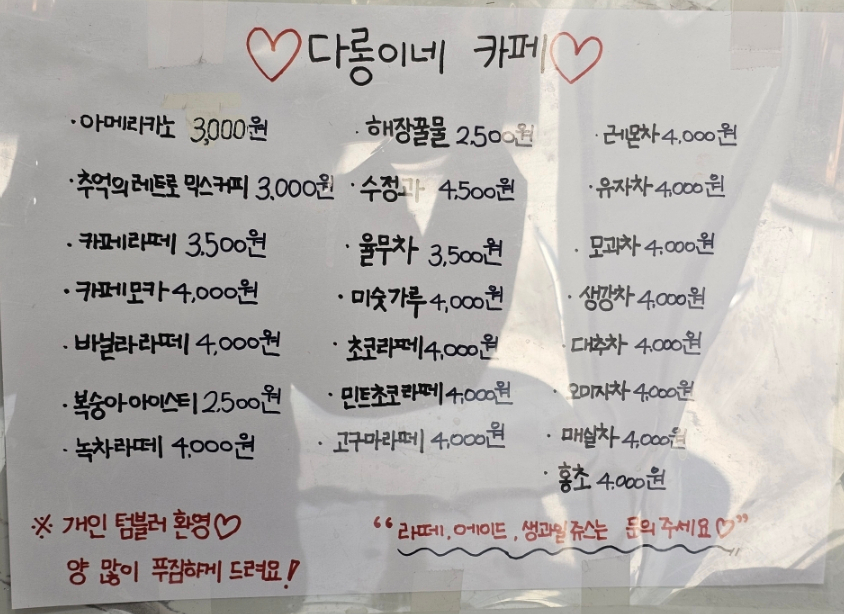 ♡다롱이네 카페♡
·아메리카노 3,000원
·추억의 레트로 믹스커피 3,000원
·카페라떼 3,500원
·카페모카 4,000원
·바닐라라떼 4,000원
·복숭아아이스티 2,500원
·녹차라떼 4,000원
·해장꿀물 2,500원
·수정과 4,500원
·율무차 3,500원
·미숫가루 4,000원
·초코라떼 4,000원
·민트초코라떼 4,000원
·고구마라떼 4,000원
·레몬차 4,000원
·유자차 4,000원
·모과차 4,000원
·생강차 4,000원
·대추차 4,000원
·오미자차 4,000원
·매실차 4,000원
·홍초 4,000원
※ 개인 텀블러 환영♡
양 많이 푸짐하게 드려요!
“라떼, 에이드, 생과일쥬스는 문의 주세요♡”